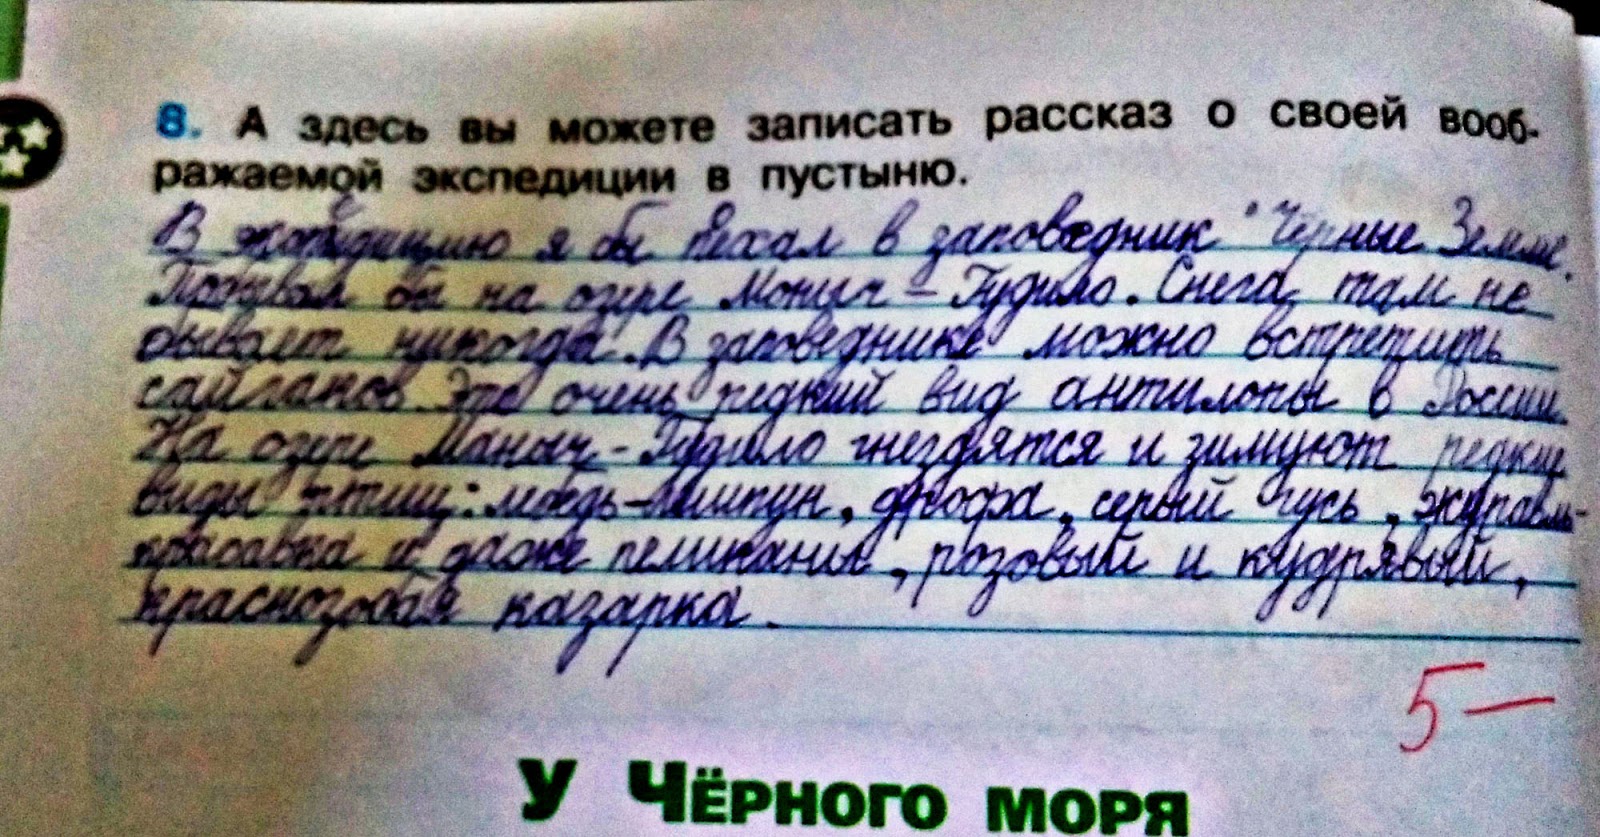 8. А здесь вы можете записать рассказ о своей вооб-
ражаемой экспедиции в пустыню.
В экспедицию я бы поехал в заповедник "Чёрные Земли".
Побывал бы на озере Моныч-Гудило. Снега там не
бывает никогда. В заповеднике можно встретить
сайгаков. Это очень редкий вид антилопы в России.
На озере Маныч-Гудило гнездятся и зимуют редкие
виды птиц: лебедь-шипун, дрофа, серый гусь, журавль-
красавка и даже пеликаны, розовый и кудрявый,
краснозобая казарка.
5-
У Чёрного моря